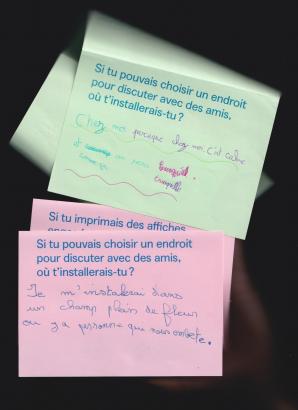 Si tu pouvais choisir un endroit
pour discuter avec des amis,
où t'installerais-tu ?
Chez moi parceque chez moi c'est calme
et un peu
Si tu imprimais des affiches
Si tu pouvais choisir un endroit
pour discuter avec des amis,
où t'installerais-tu ?
Je m'instalerai dans
un champ plein de fleur
ou y a personne qui nous embete.